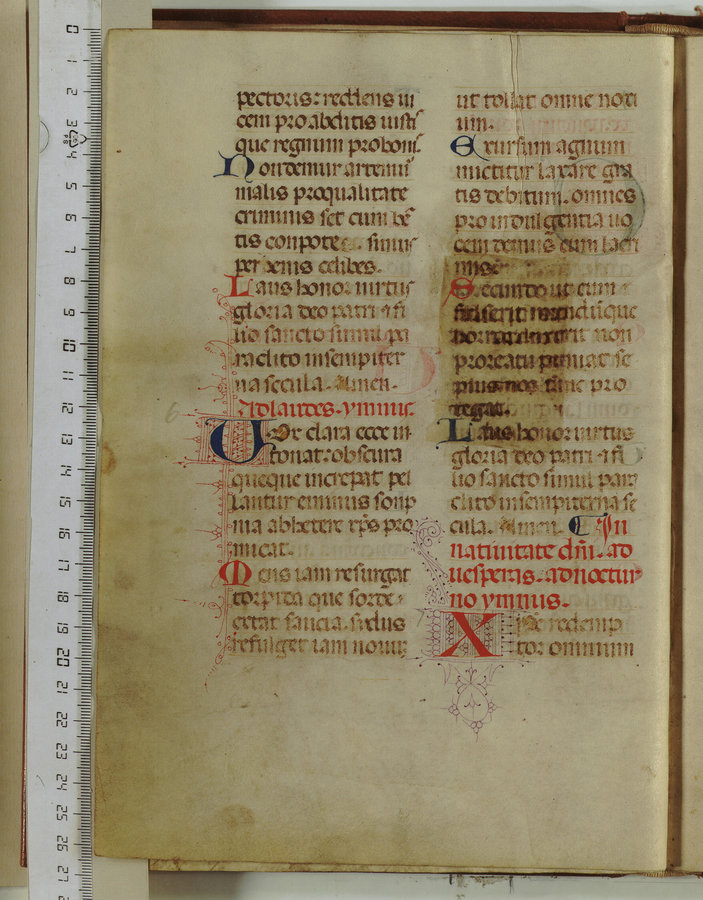 pectoris: reddens ui
cem pro abditis iusti
que regnum pro bonis.
Non demur artemur
malis pro qualitate
criminis set cum be
tis conpotes simus
per hennis celibes.
Laus honor uirtus
gloria deo patri ⁊ fi
lio sancto simul pa
raclito in sempiter
na secula. Amen.
Ad laudes. ymnus.
Uox clara ecce in
tonat: obscura
queque increpat pel
lantur eminus sonp
nia ab hetere xp̄s pro
micat.
Mens iam resurgat
torpida que sorde
cetat saucia. sydus
refulget iam nouum
ut tollat omne noti
um.
Exursum agnum
mictitur laxare gra
tis debitum. omnes
pro indulgentia uo
cem demus cum lacri
mis.
Secundo ut cum
fulserit mundūque
horror cinxerit non
pro reatu puniat se
pius nos tunc pro
tegat.
Laus honor uirtus
gloria deo patri ⁊ fi
lio sancto simul para
clito in sempiterna se
cula. Amen. In
natiuitate dn̄i. ad
uesperas. ad noctur
no ymnus.
Xp̄e redemp
tor omnium